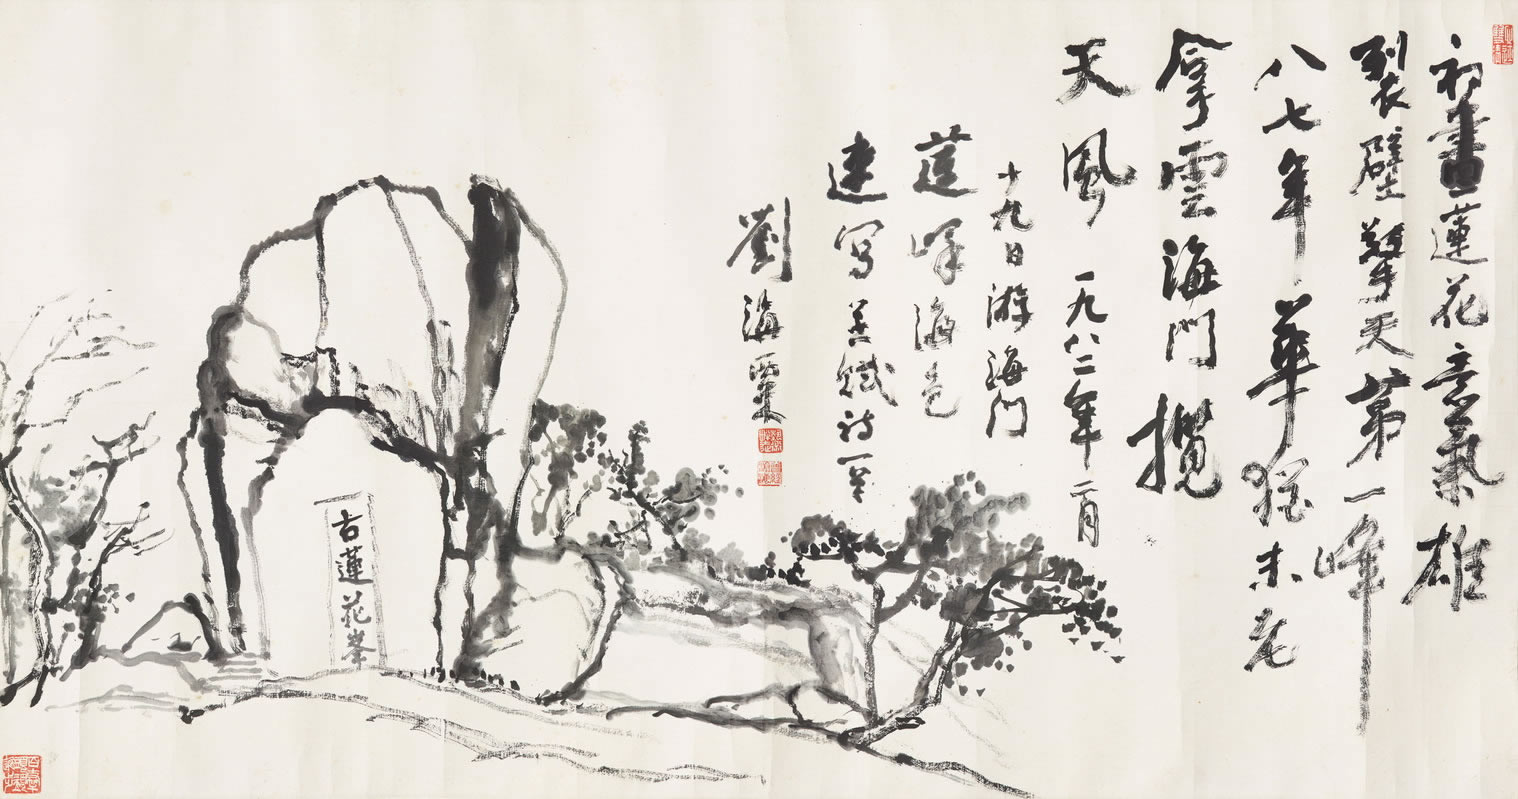 初畫蓮花意氣雄
裂壁擎天第一峰
八七年華猶未老
拿雲海門攬
天風 一九八二年二月
十九日游海門
蓮峰海色
速寫并賦詩一章
劉海粟
古蓮花峯